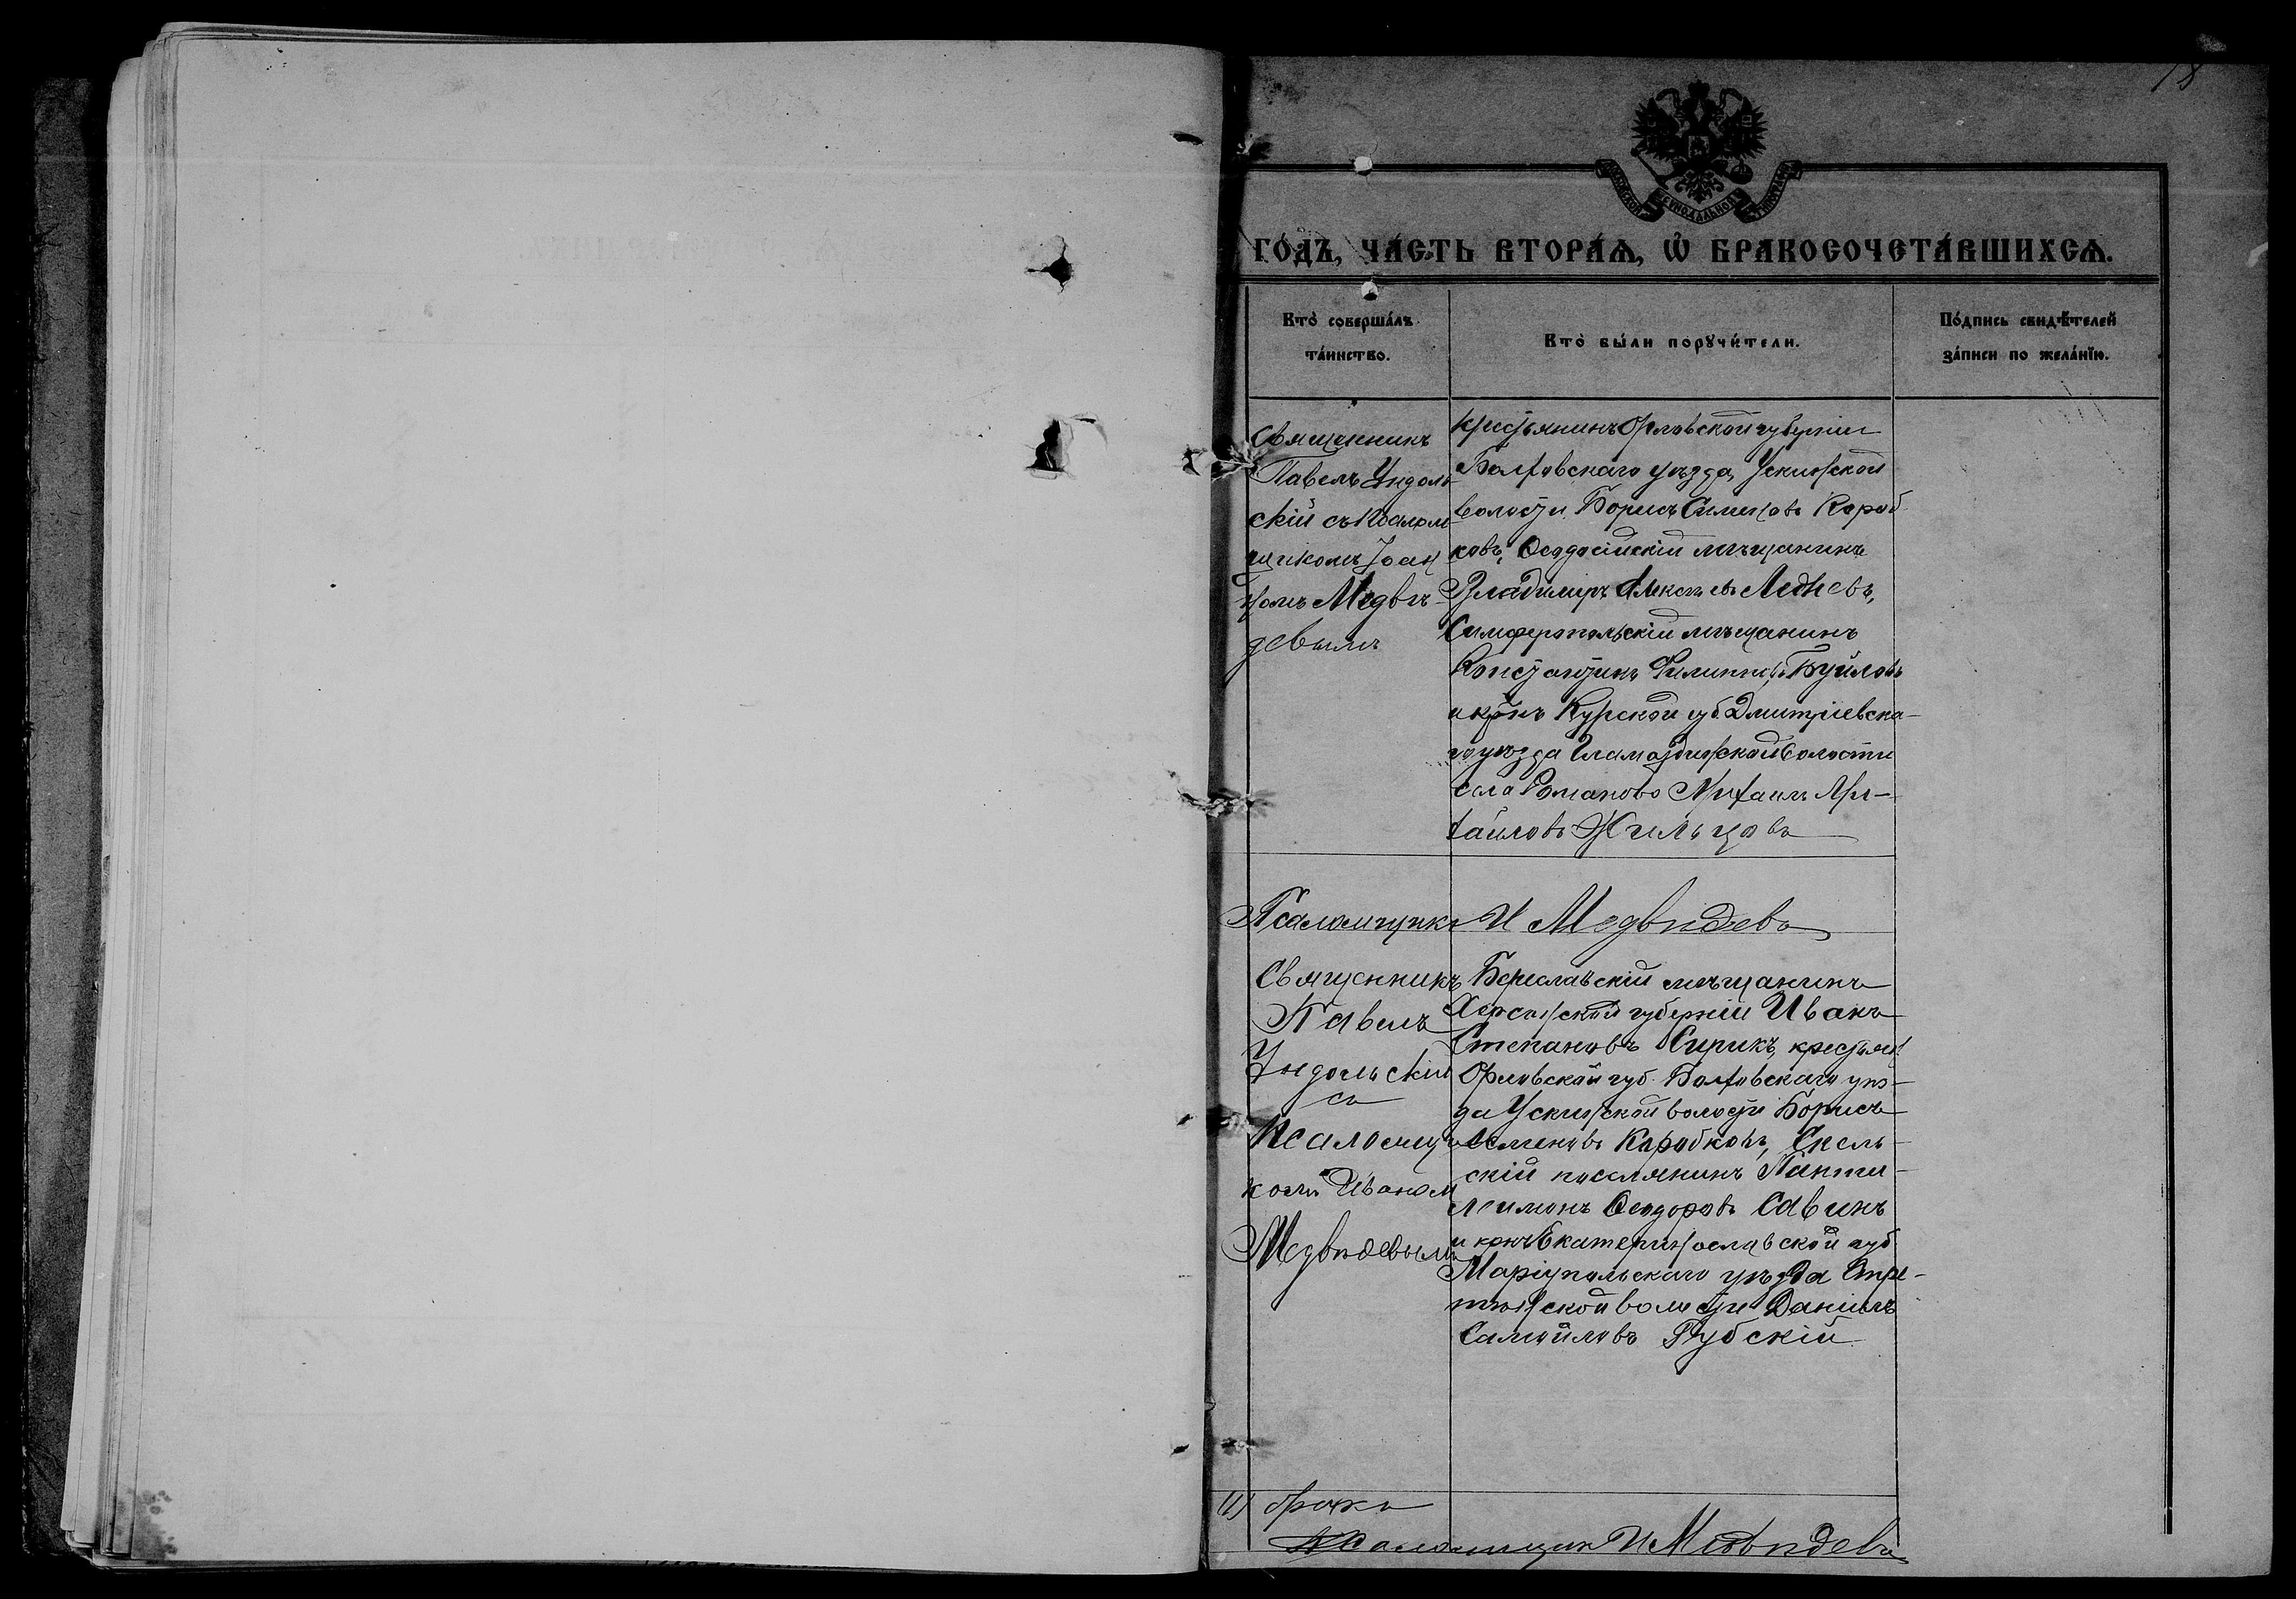 18
МОСКОВСКОЙ СѴНОДАЛЬНОЙ ТИПОГРАФІИ
ГО́ДЪ, ЧА́СТЬ ВТОРА́Ѧ, Ѽ БРАКОСОЧЕТА́ВШИХСѦ.
Кто̀ соверша́лъ
та́инство.
Кто̀ бы́ли порꙋчи́тели.
По́дпись свидѣ́телей
за́писи по жела́нїю.
Священникъ
Павелъ Ундоль-
скій съ псалом
щикомъ Іоан
номъ Медвѣ-
девымъ
крестьянинъ Орловской губерніи
Болховского уѣзда, Ускинской
волости Борисъ Симеоновъ Короб
ковъ; Ѳеодосійскій мѣщанинъ
Владимиръ Алексѣевъ Ледневъ,
Симферопольскій мѣщанинъ
Константинъ Филипповъ Буйловъ
и крнъ Курской губ. Дмитріевска-
го уѣзда Гламаздинской волости
села Романово Михаилъ Ми-
хайловъ Жильцовъ
Псаломщикъ И Медвѣдевъ
Священникъ
Павелъ
Ундольскій
съ
Псаломщи
комъ Иваном
Медвѣдевымъ
Бериславскій мѣщанинъ
Херсонской губерніи Иванъ
Степановъ Сирикъ, крестьян.
Орловской губ. Болховского уѣз-
да Ускинской волости Борисъ
Семеновъ Коробковъ, Скель-
скій поселянинъ Панте-
леимонъ Ѳеодоровъ Савинъ
и крнъ Екатеринославской губ
Маріупольскаго уѣзда Стре-
тенской волости Даніилъ
Самойловъ Губскій
(1) брака
Псаломщик И Медвѣдевъ